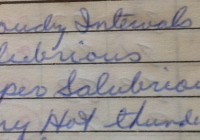 oudy Intervals
lubrious
per Salubriou
ry Hot thunde